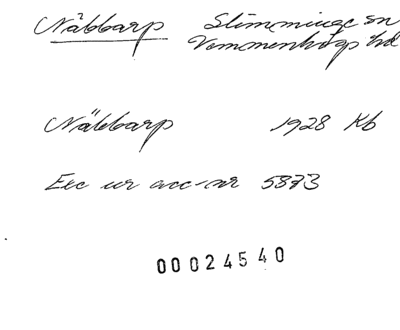 Näbbarp Slimminge sn
Vemmenhögs hd
Näbbarp 1928 Kb
Exc ur acc-nr 5873
00024540